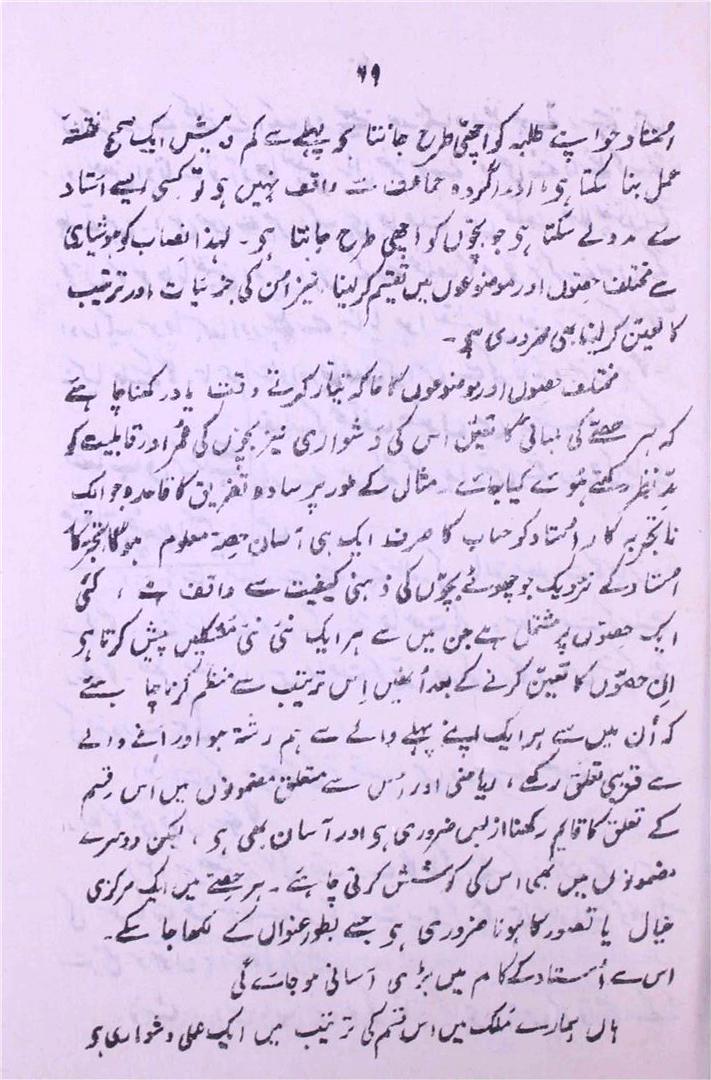 ۶۹
استاد جو اپنے طلبہ کو اچھی طرح جانتا ہو پہلے سے کم و بیش ایک صحیح نقشۂ
عمل بنا سکتا ہو، اور اگر وہ جماعت سے واقف نہیں ہو تو کسی ایسے استاد
سے مدد لے سکتا ہو جو بچوں کو اچھی طرح جانتا ہو۔ لہذا نصاب کو ہوشیاری
سے مختلف حصّوں اور موضوعوں میں تقسیم کر لینا، نیز اُن کی جزئیات اور ترتیب
کا تعین کر لینا بھی ضروری ہو۔
مختلف حصوں اور موضوعوں کا خاکہ تیار کرتے وقت یاد رکھنا چاہئے
کہ ہر حصے کی لمبائی کا تعیّن اس کی دشواری نیز بچوں کی عمر اور قابلیت کو
مدِّنظر رکھتے ہُوئے کیا جائے۔ مثال کے طور پر سادہ تفریق کا قاعدہ جو ایک
ناتجربہ کار اُستاد کو حساب کا صرف ایک ہی آسان حِصّہ معلوم ہوگا تجربہ کار
اُستاد کے نزدیک جو چھوٹے بچوّں کی ذہنی کیفیت سے واقف ہے، کئی
ایک حصّوں پر مشتمل ہے جن میں سے ہر ایک نئی نئی مُشکلیں پیش کرتا ہو
اِن حصّوں کا تعیّن کرنے کے بعد اُنھیں اِس ترتیب سے منظم کرنا چاہئے
کہ اُن میں سے ہر ایک اپنے پہلے والے سے ہم رشتہ ہو اور آنے والے
سے قریبی تعلق رکھے، ریاضی اور اُس سے متعلق مضمونوں میں اس قِسم
کے تعلق کا قایم رکھنا ازبس ضروری ہو اور آسان بھی ہو، لیکن دوسرے
مضمونوں میں بھی اس کی کوشش کرنی چاہئے۔ ہر حِصّے میں ایک مرکزی
خیال یا تصور کا ہونا ضروری ہو جسے بطور عنوان کے لکھا جا سکے۔
اس سے اُستاد کے کام میں بڑی آسانی ہو جائے گی
ہاں ہمارے مُلک میں اس قسم کی ترتیب میں ایک عملی دشواری ہو